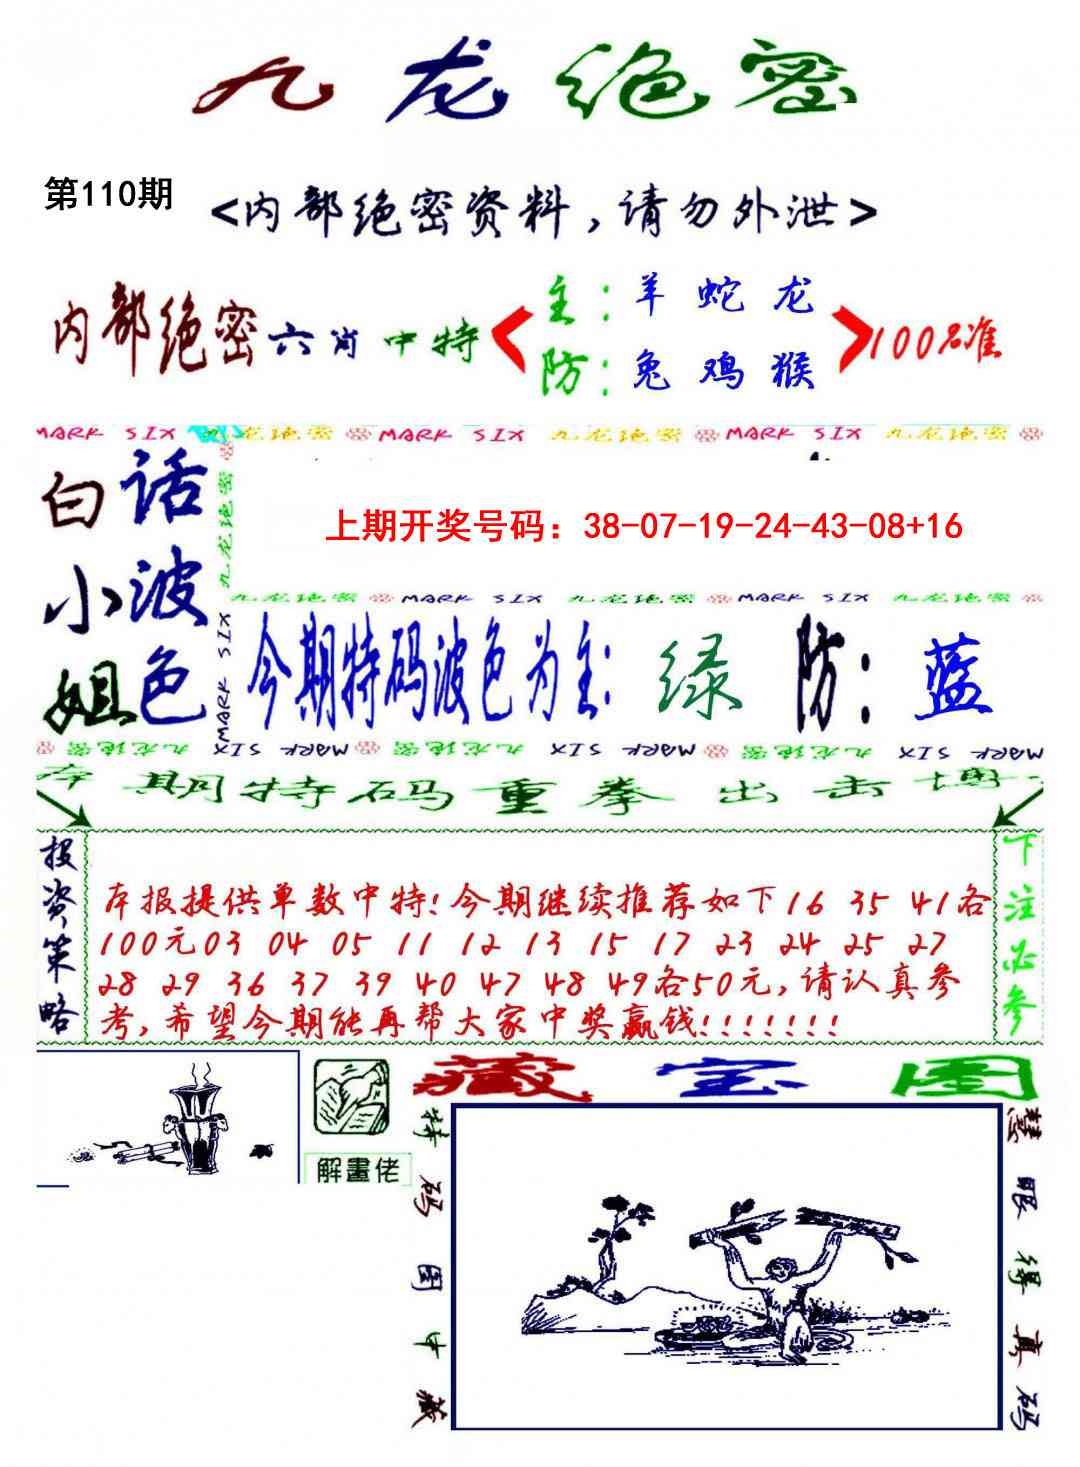 九龙绝密
第110期
<内部绝密资料,请勿外泄>
主:羊 蛇 龙
内部绝密六肖中特
100%准
防:兔 鸡 猴
MARK SIX 九龙绝密 MARK SIX 九龙绝密 MARK SIX 九龙绝密
白小姐
话波色
九龙绝密
MARK SIX
上期开奖号码：38-07-19-24-43-08+16
九龙绝密 MARK SIX 九龙绝密 MARK SIX 九龙绝密
今期特码波色为主: 绿 防: 蓝
九龙绝密 MARK SIX 九龙绝密 MARK SIX 九龙绝密 MARK SIX
本期特码重拳出击博
投资策略
本报提供单数中特!今期继续推荐如下16 35 41各
100元03 04 05 11 12 13 15 17 23 24 25 27
28 29 36 37 39 40 47 48 49各50元,请认真参
考,希望今期能再帮大家中奖赢钱!!!!!!!
下注必参
解畫佬
藏宝图
特码图中藏
慧眼得真码